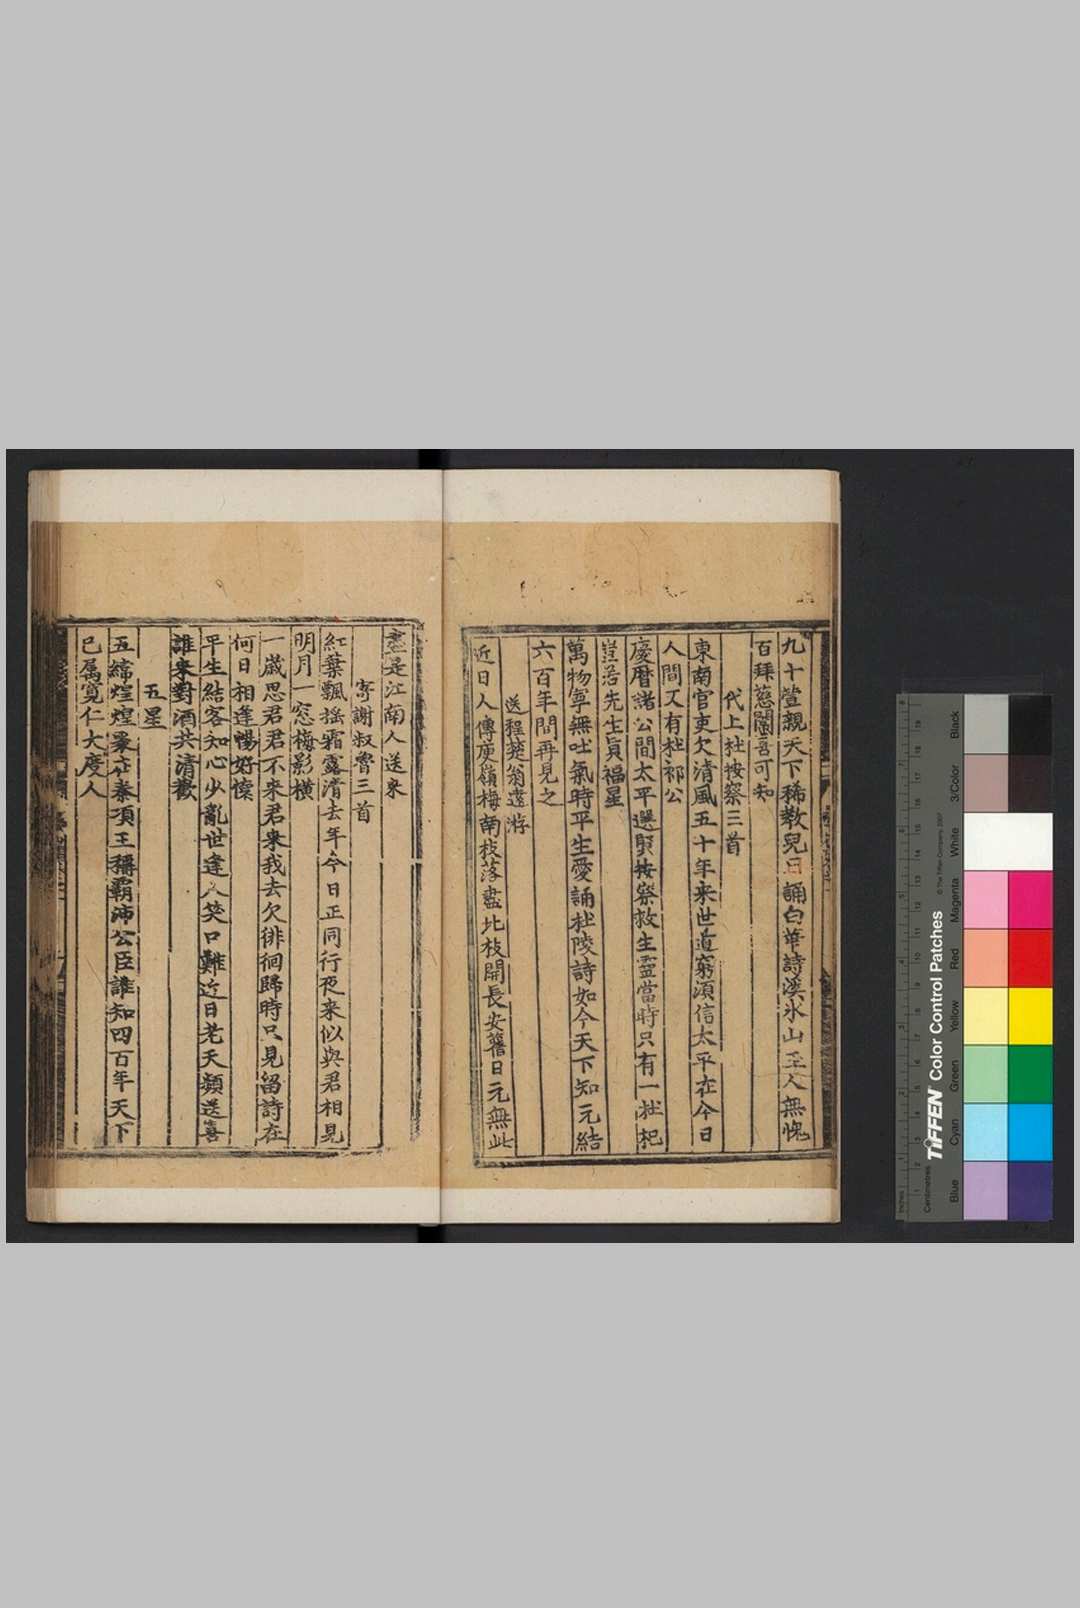 九十萱親天下稀教兒日誦白華詩溪氷山至人無愧
百拜慈闈喜可知
代上杜按察三首
東南官吏欠清風五十年来世道窮須信太平在今日
人間又有杜祁公
慶曆諸公間太平選賢按察救生靈當時只有一杜杞
豈若先生眞福星
萬物寧無吐氣時平生愛誦杜陵詩如今天下知元結
六百年間再見之
送程楚翁遠游
近日人傳庾嶺梅南枝落盡北枝開長安舊日元無此
盡是江南人送来
寄謝叔魯三首
紅葉飄揺霜露清去年今日正同行夜来似與君相見
明月一窓梅影横
一歳思君君不来君来我去欠徘徊歸時只見留詩在
何日相逢暢好懐
平生結客知心少亂世逢人笑口難近日老天頻送喜
誰来對酒共清歡
五星
五緯煌煌聚在秦項王稱霸沛公臣誰知四百年天下
已属寛仁大度人
Inches
Centimetres
TIFFEN® Color Control Patches
© The Tiffen Company, 2007
Blue
Cyan
Green
Yellow
Red
Magenta
White
3/Color
Black